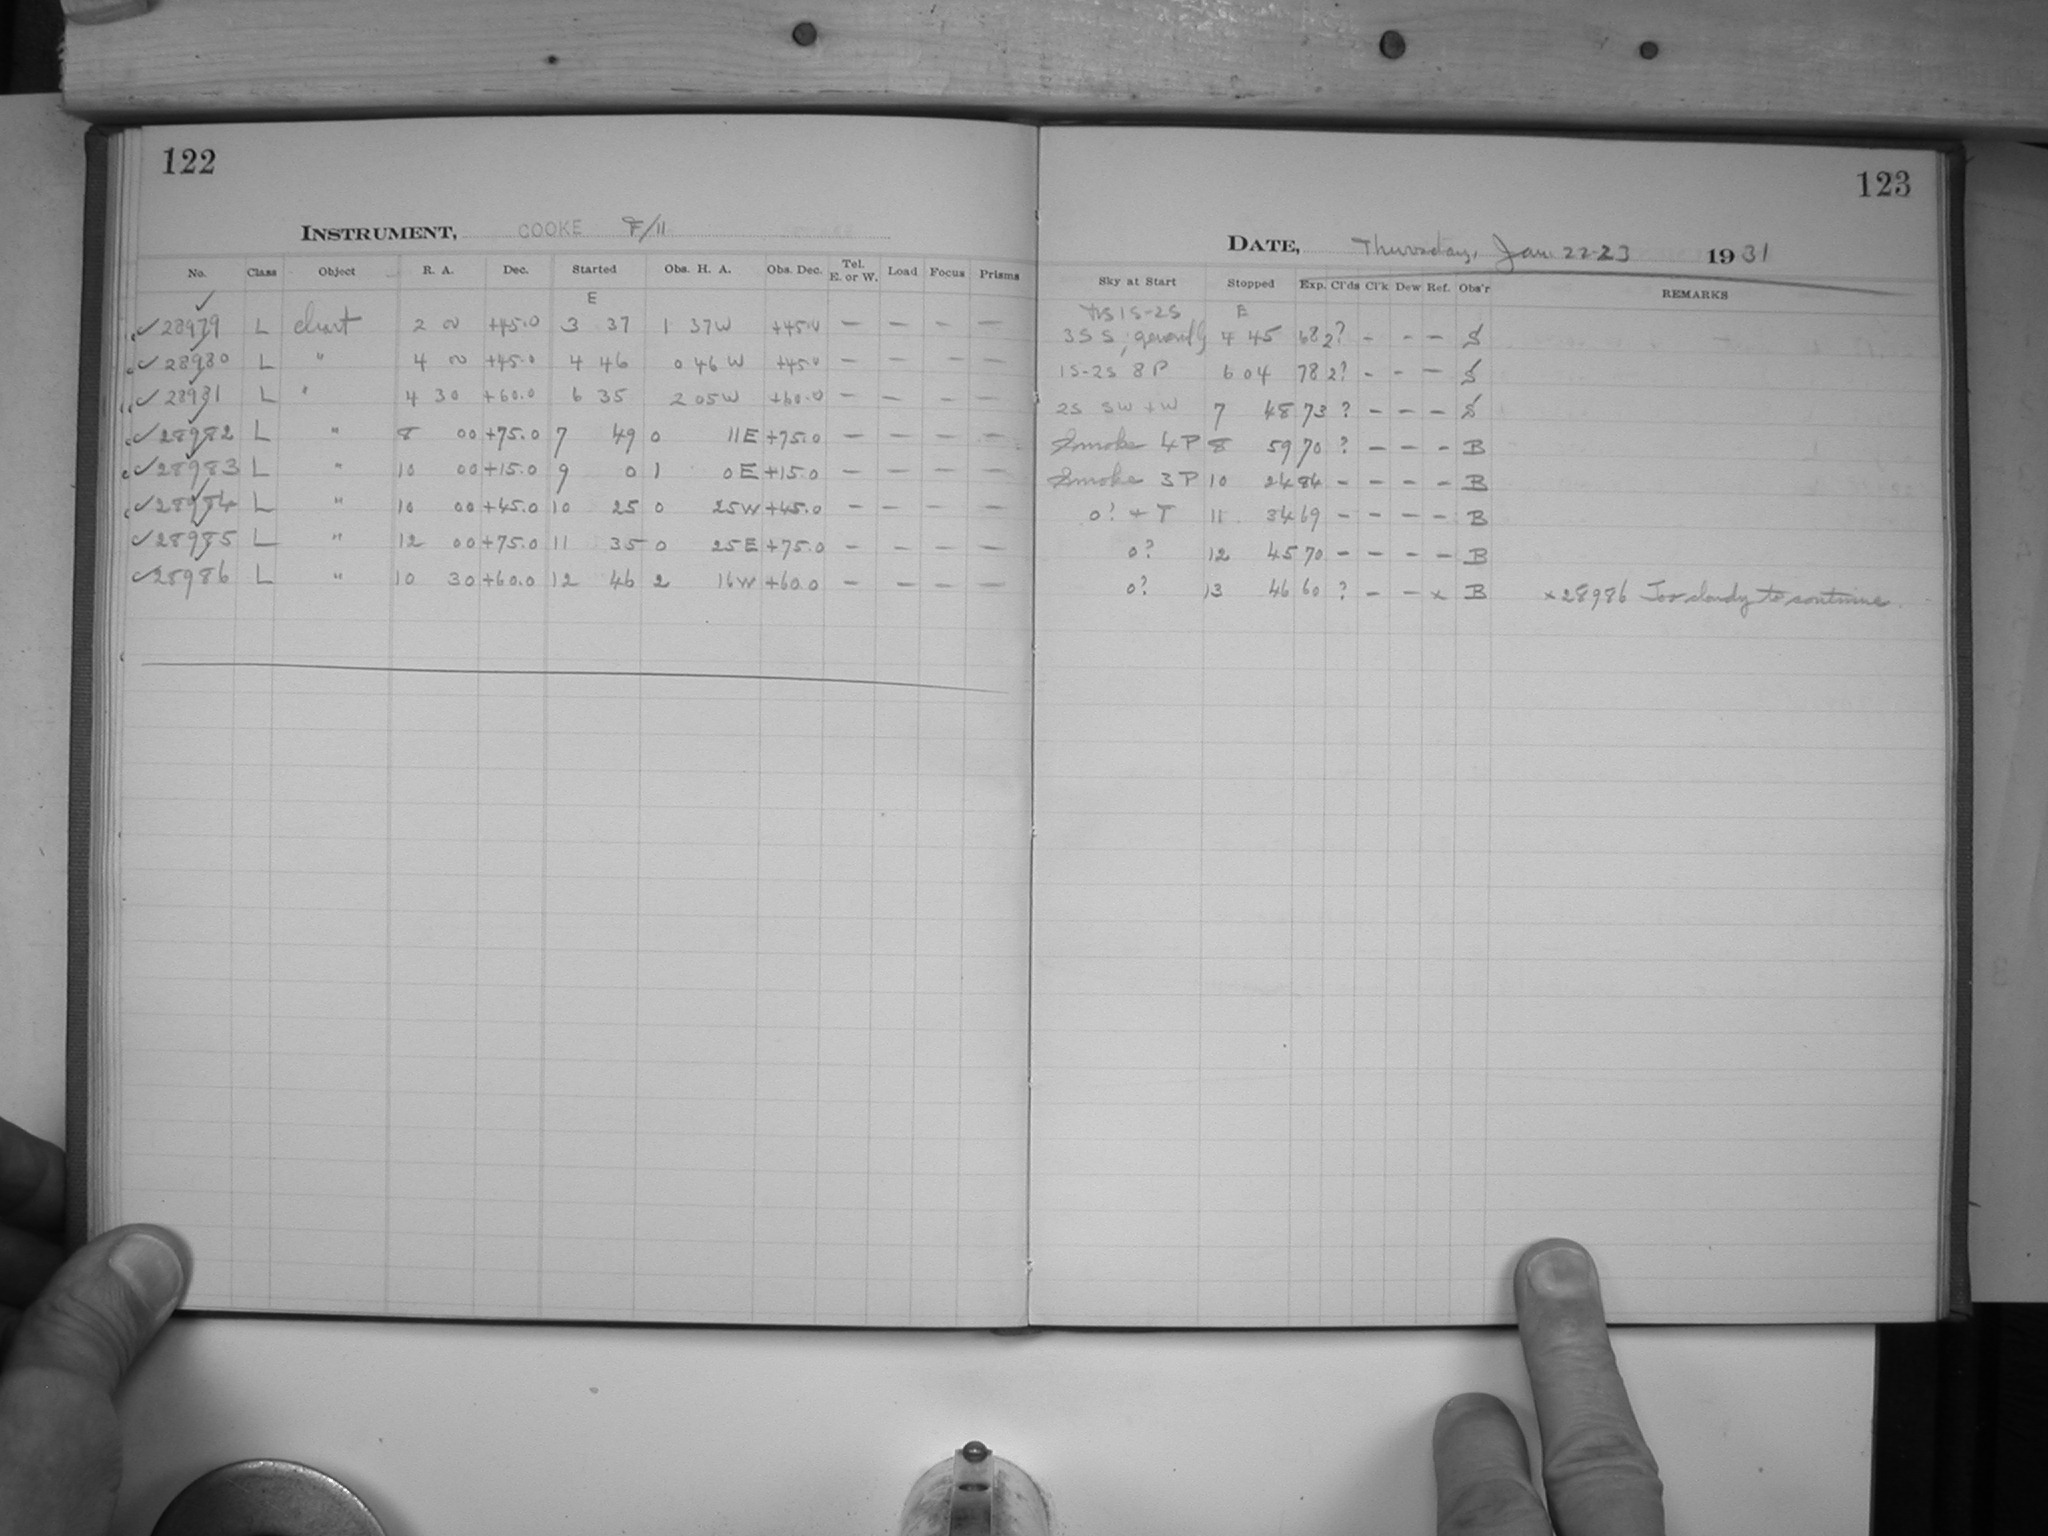 122
INSTRUMENT, COOKE F/11
No. Class Object R. A. Dec. Started Obs. H. A. Obs. Dec. Tel. E. or W. Load Focus Prisms
E
28979 L chart 2 00 +45.0 3 37 1 37W +45.0 — — — —
28980 L " 4 00 +45.0 4 46 0 46 W +45.0 — — — —
28981 L " 4 30 +60.0 6 35 2 05W +60.0 — — — —
28982 L " 8 00 +75.0 7 49 0 11E +75.0 — — — —
28983 L " 10 00 +15.0 9 0 1 0E +15.0 — — — —
28984 L " 10 00 +45.0 10 25 0 25W +45.0 — — — —
28985 L " 12 00 +75.0 11 35 0 25E +75.0 — — — —
28986 L " 10 30 +60.0 12 46 2 16W +60.0 — — — —
123
DATE, Thursday, Jan 22-23 1931
Sky at Start Stopped Exp. Cl'ds Cl'k Dew Ref. Obs'r REMARKS
1S-2S E
3S S; generally 4 45 68 2? - - - S
1S-2S 8P 6 04 78 2? - - - S
2S SW + W 7 48 73 ? - - - S
Smoke 4P 8 59 70 ? - - - B
Smoke 3P 10 24 84 - - - - B
0? + T 11 34 69 - - - - B
0? 12 45 70 - - - - B
0? 13 46 60 ? - - x B x 28986 Too cloudy to continue.